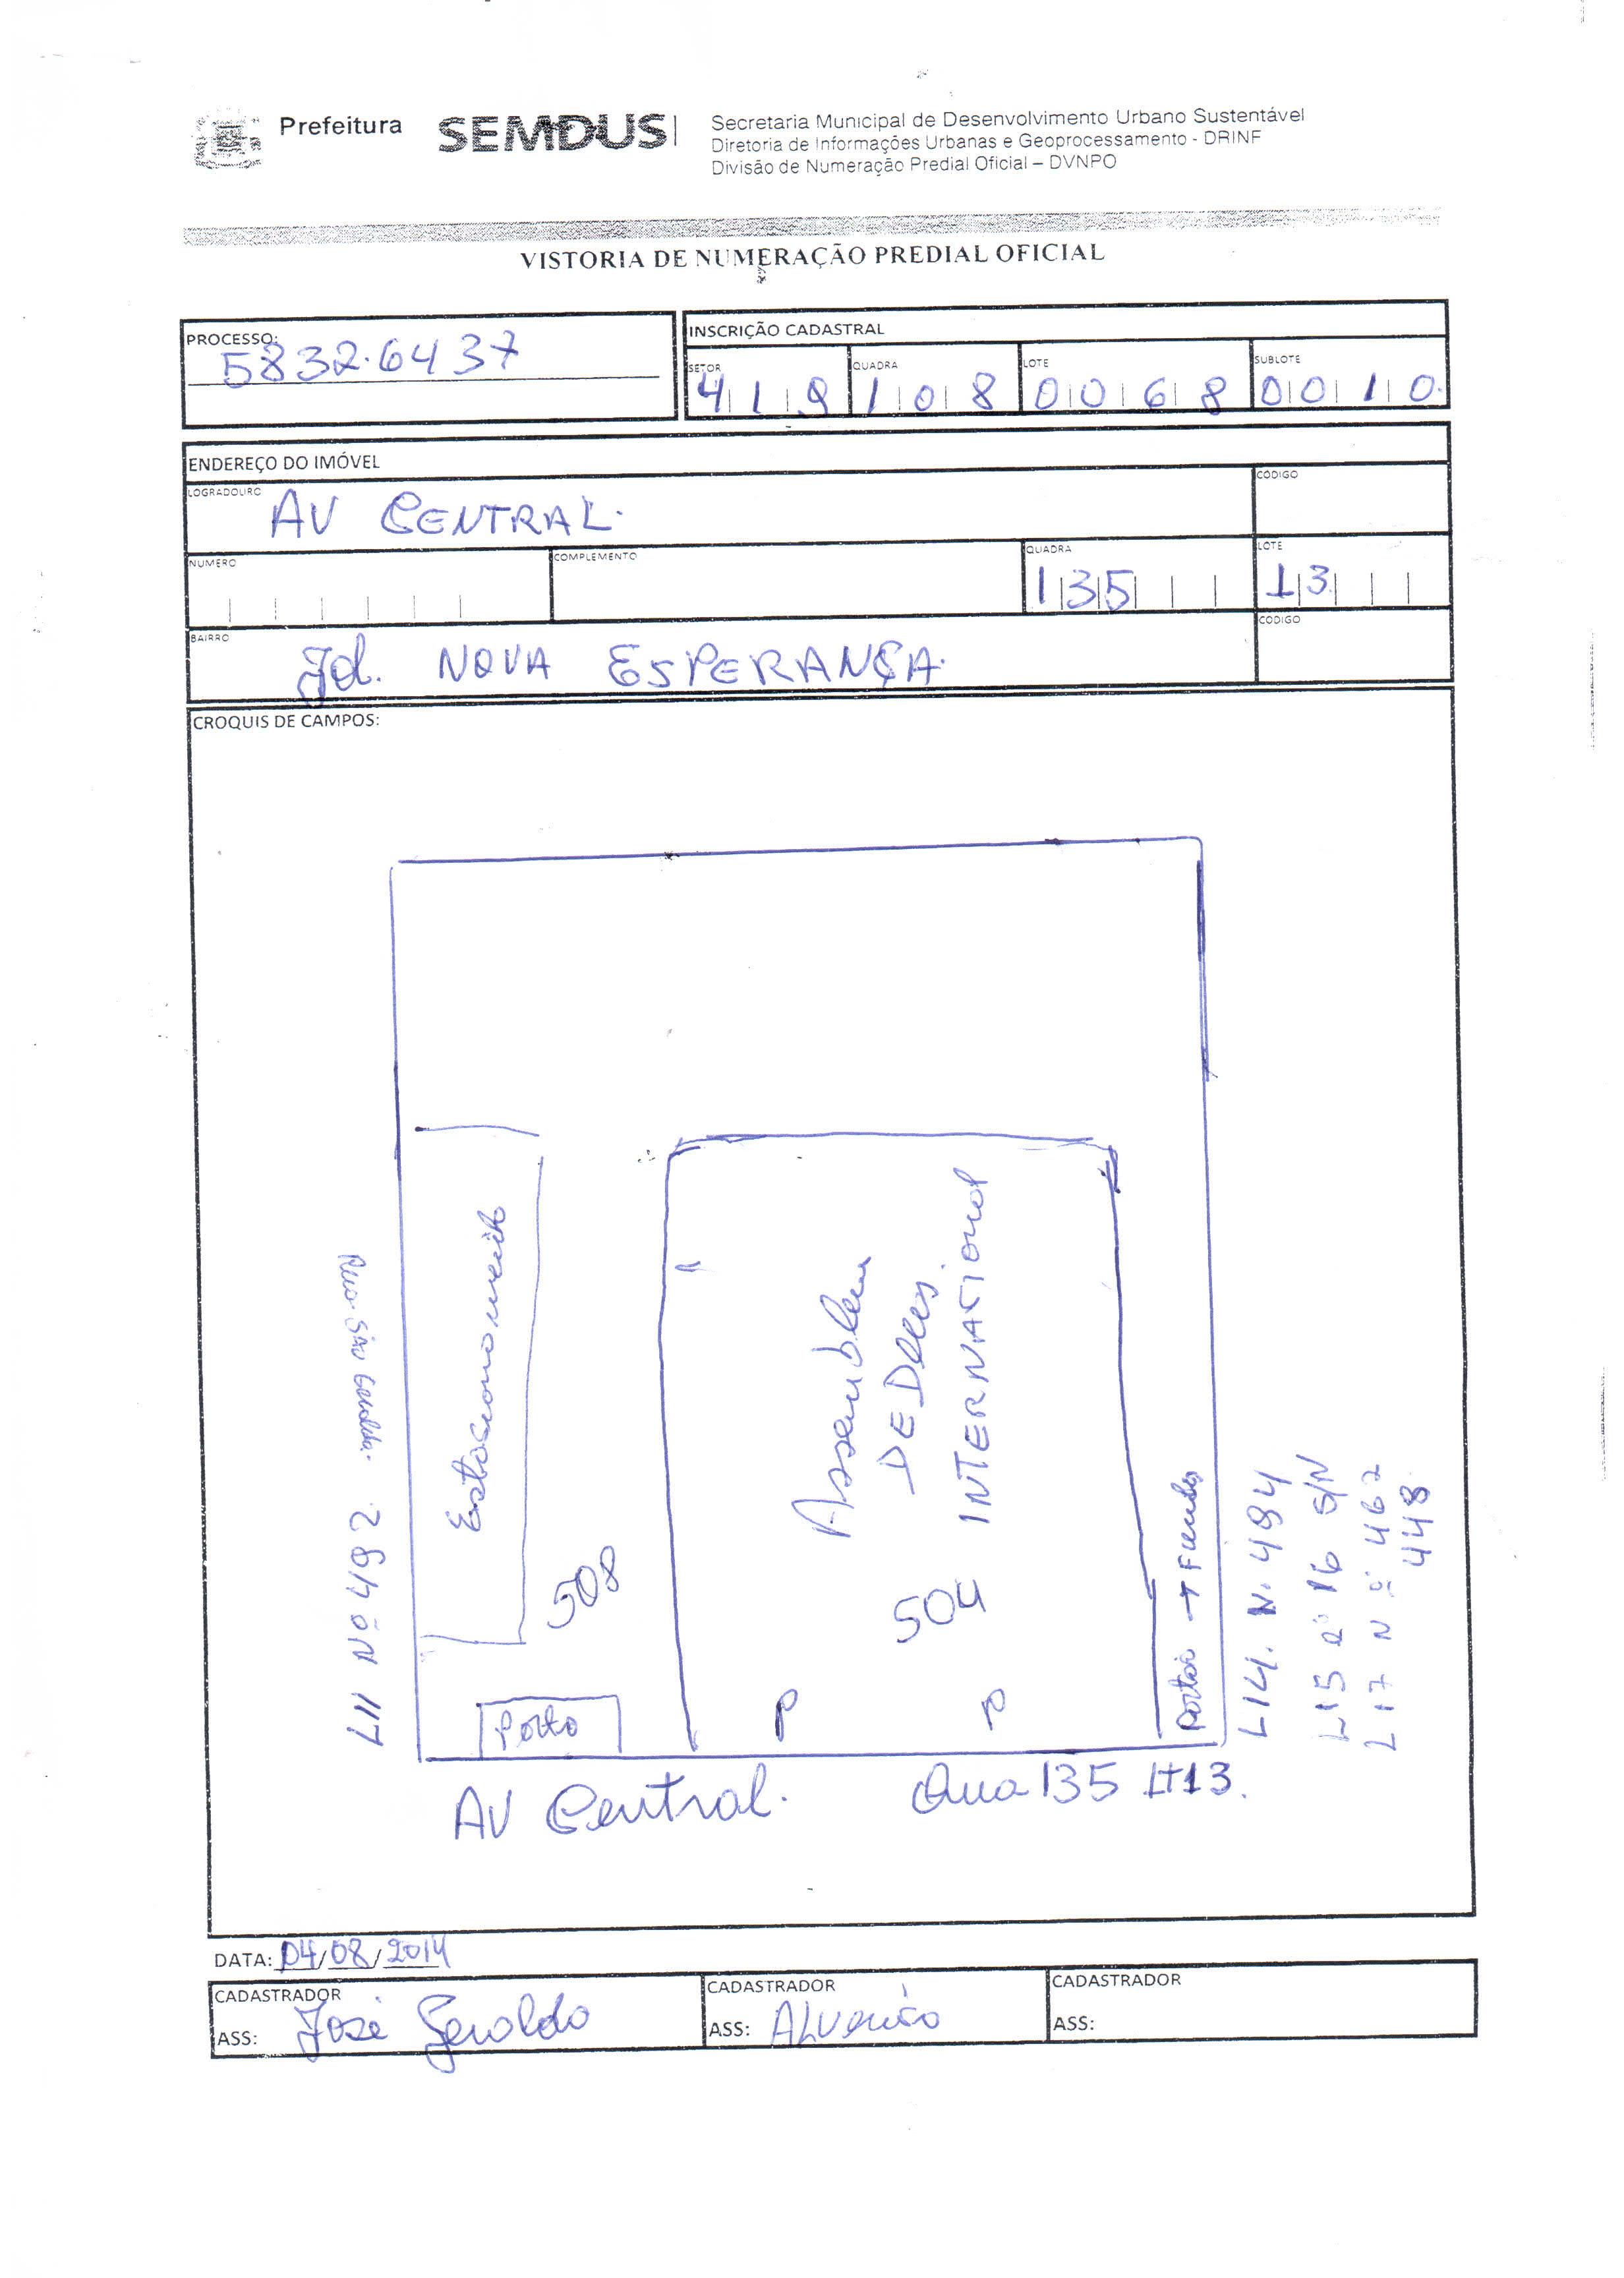 Prefeitura SEMDUS
Secretaria Municipal de Desenvolvimento Urbano Sustentável
Diretoria de Informações Urbanas e Geoprocessamento - DRINF
Divisão de Numeração Predial Oficial – DVNPO
VISTORIA DE NUMERAÇÃO PREDIAL OFICIAL
PROCESSO:
5832.6437
INSCRIÇÃO CADASTRAL
SETOR QUADRA LOTE SUBLOTE
4 1 9 1 0 8 0 0 6 8 0 0 1 0.
ENDEREÇO DO IMÓVEL
LOGRADOURO CÓDIGO
AV CENTRAL.
NUMERO COMPLEMENTO QUADRA LOTE
135 13
BAIRRO CÓDIGO
Jd. NOVA ESPERANÇA.
CROQUIS DE CAMPOS:
Rua São Geraldo.
L11 Nº 492
Estacionamento
508
Porto
Assemblea
DE Deus.
INTERNACIONAL
504
P P
Portão → Fundos
L14. N. 494
L15 e 16 S/N
L17 Nº 462
448
AV Central. Qua 135 Lt13.
DATA: 04/08/2014
CADASTRADOR
ASS: José Geraldo
CADASTRADOR
ASS:
CADASTRADOR
ASS: